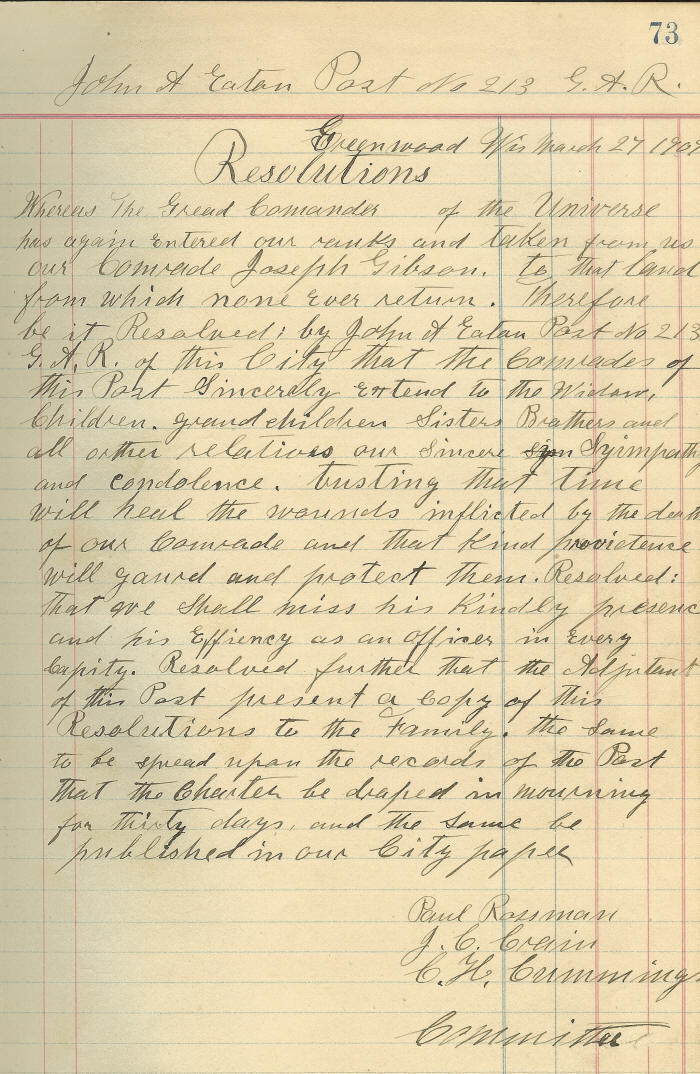 73
John A Eaton Post No 213 G. A. R.
Greenwood Wis March 27 190
Resolutions
Whereas The Gread Comander of the Universe
has again Entered our ranks and taken from us
our Comrade Joseph Gibson. to that land
from which none Ever return. Therefore
be it Resolved; by John A Eaton Post No 213
G. A. R. of this City that the Comrades of
this Post Sincerely Extend to the Widow,
Children. grandchildren Sisters Brothers and
all orther relatives our Sincere syn Syimpathy
and condolence. trusting that time
will heal the wounds inflicted by the death
of our Comrade and that Kind providence
will gaurd and protect them. Resolved:
that we Shall miss his Kindly presenc
and his Effiency as an officer in Every
Capity. Resolved further that the Adjutant
of this Post present a Copy of this
Resolutions to the Family. the Same
to be spread upon the records of the Post
that the Charter be draped in mourning
for thirty days, and the Same be
published in our City paper
Paul Rossman
J. C. Crain
C. H. Cummings
Committee